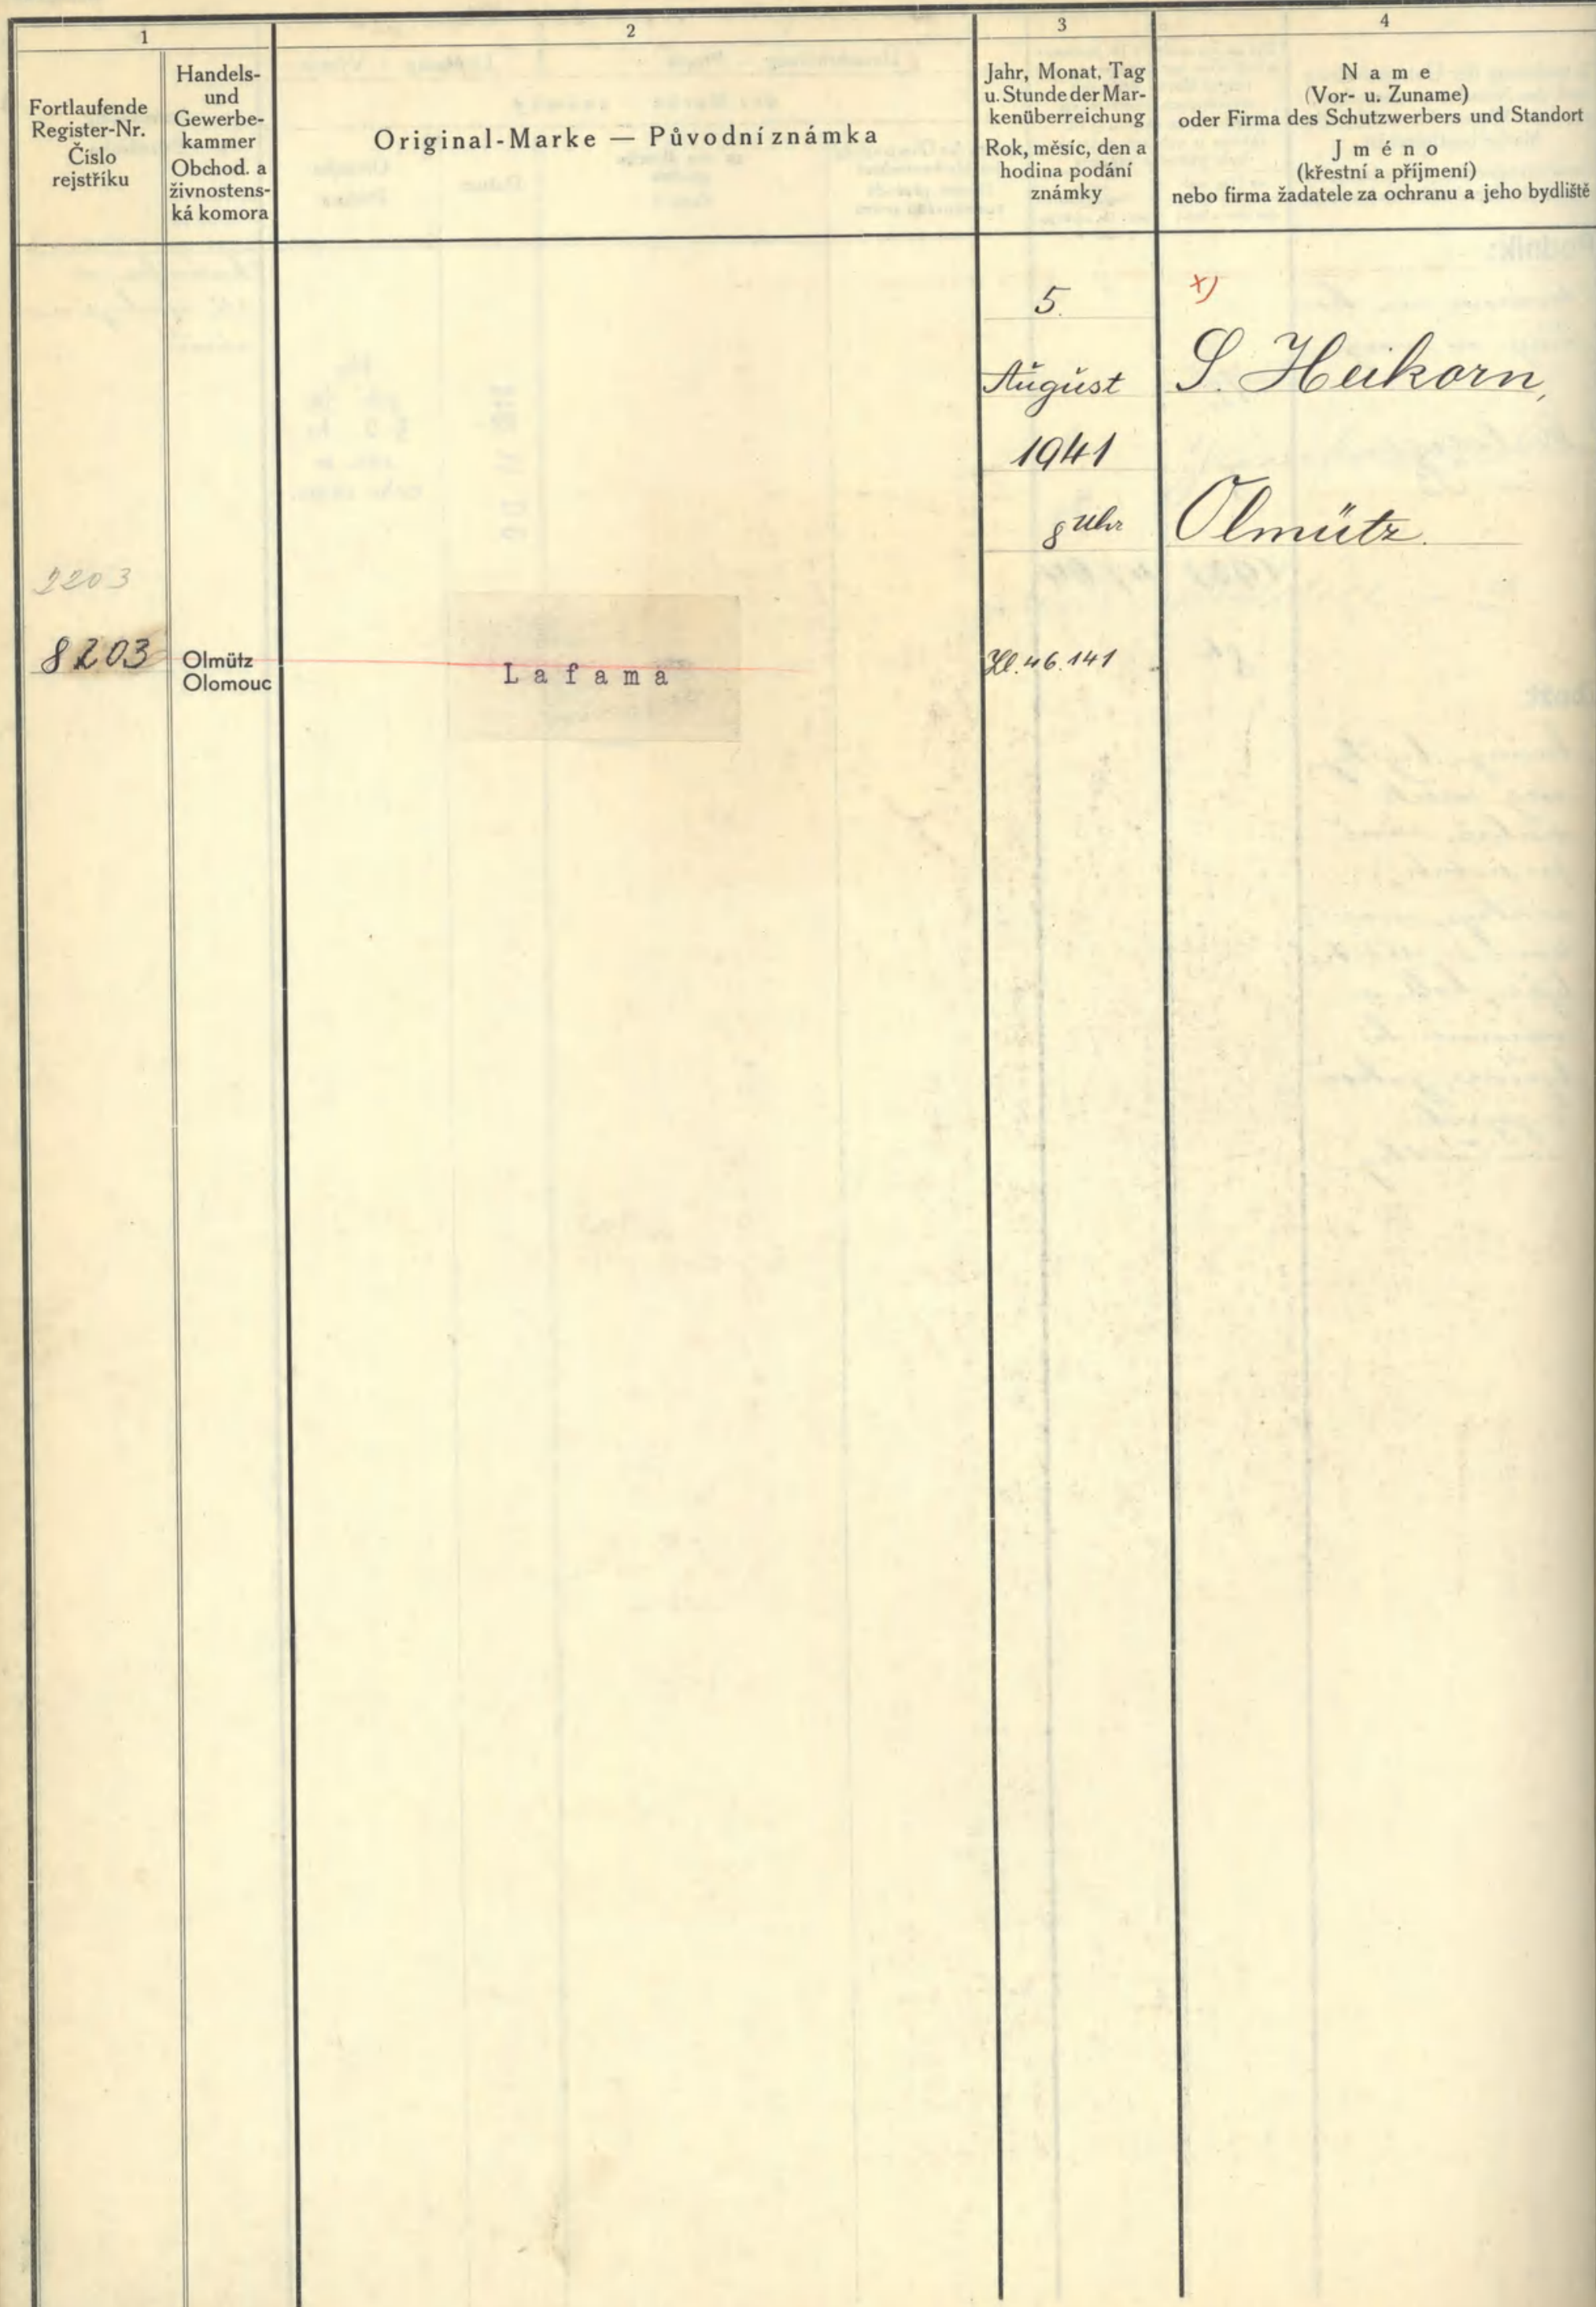 1
2
3
4
Fortlaufende
Register-Nr.
Číslo
rejstříku
Handels-
und
Gewerbe-
kammer
Obchod. a
živnostens-
ká komora
Original-Marke — Původní známka
Jahr, Monat, Tag
u. Stunde der Mar-
kenüberreichung
Rok, měsíc, den a
hodina podání
známky
Name
(Vor- u. Zuname)
oder Firma des Schutzwerbers und Standort
Jméno
(křestní a příjmení)
nebo firma žadatele za ochranu a jeho bydliště
5.
August
1941
8 Uhr
x)
S. Heikorn,
Olmütz.
2203
8203
Olmütz
Olomouc
Lafama
46.141